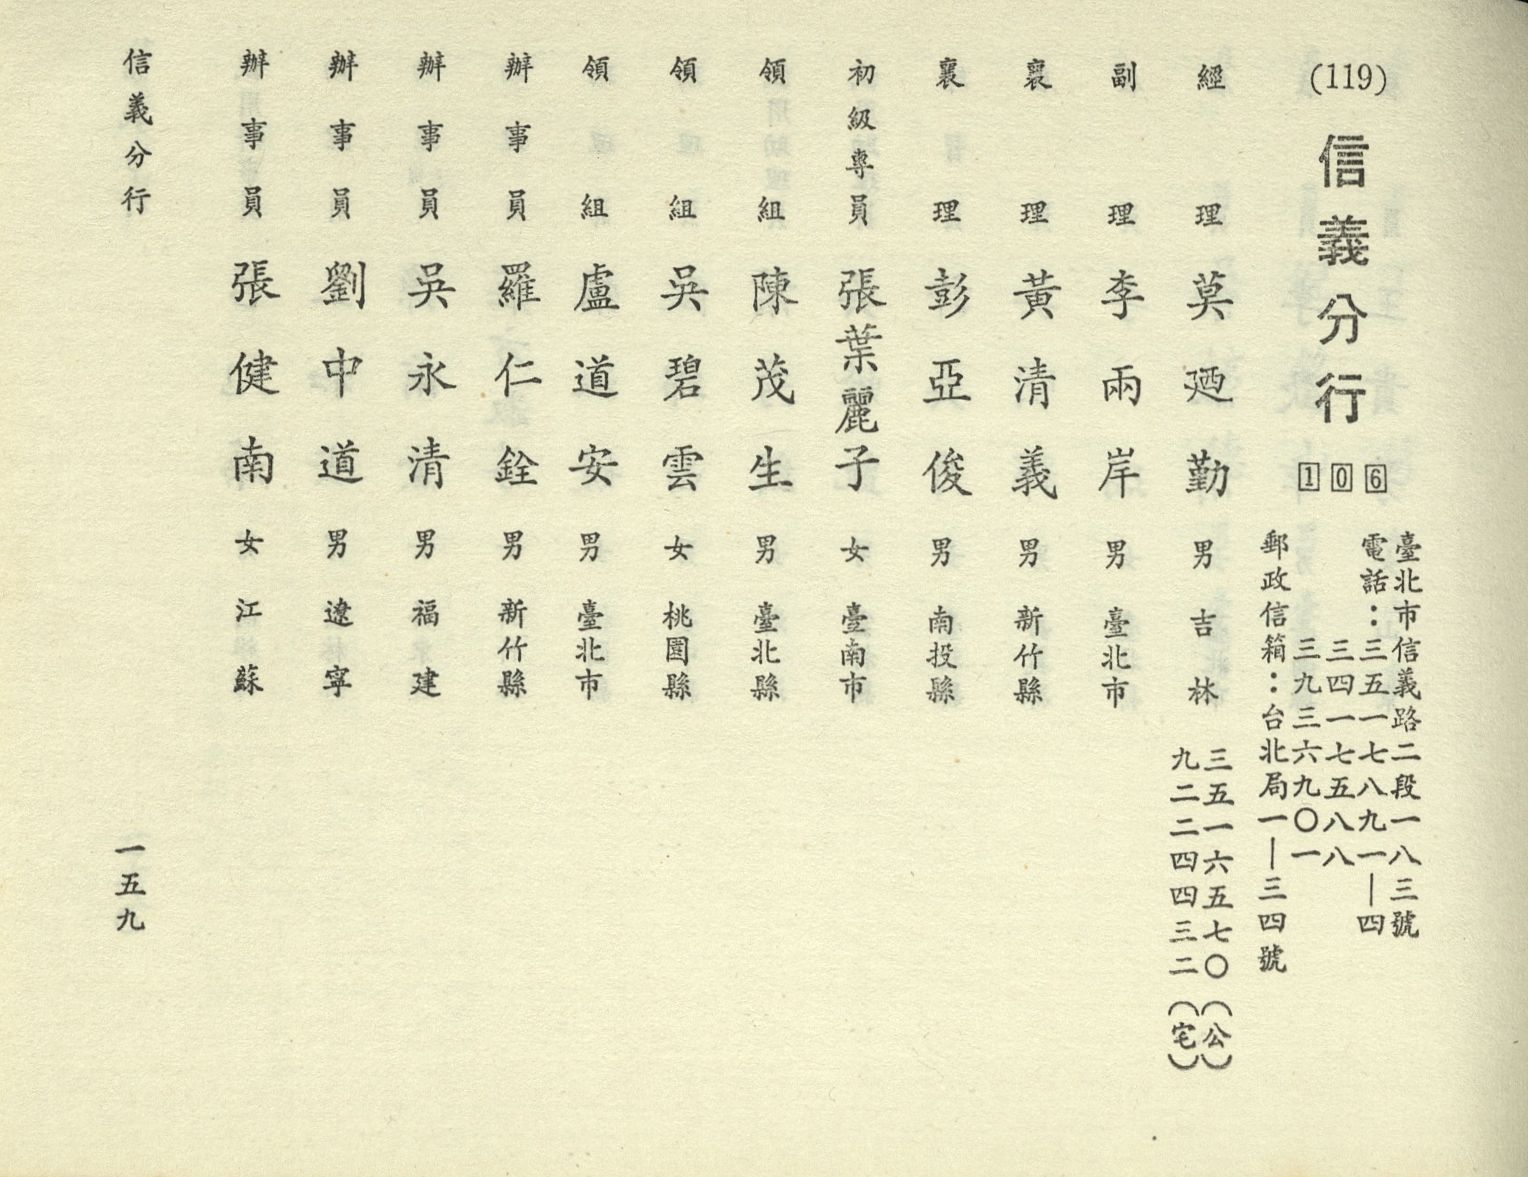 (119)
信義分行
106
臺北市信義路二段一八三號
電話：三五一七八九一—四
三四一七五八八
三九三六九〇一
郵政信箱：台北局一—三四號
經理 莫廼勤 男 吉林 三五一六五七〇（公）
九二二四四三二（宅）
副理 李兩岸 男 臺北市
襄理 黃清義 男 新竹縣
襄理 彭亞俊 男 南投縣
初級專員 張葉麗子 女 臺南市
領組 陳茂生 男 臺北縣
領組 吳碧雲 女 桃園縣
領組 盧道安 男 臺北市
辦事員 羅仁銓 男 新竹縣
辦事員 吳永清 男 福建
辦事員 劉中道 男 遼寧
辦事員 張健南 女 江蘇
信義分行
一五九